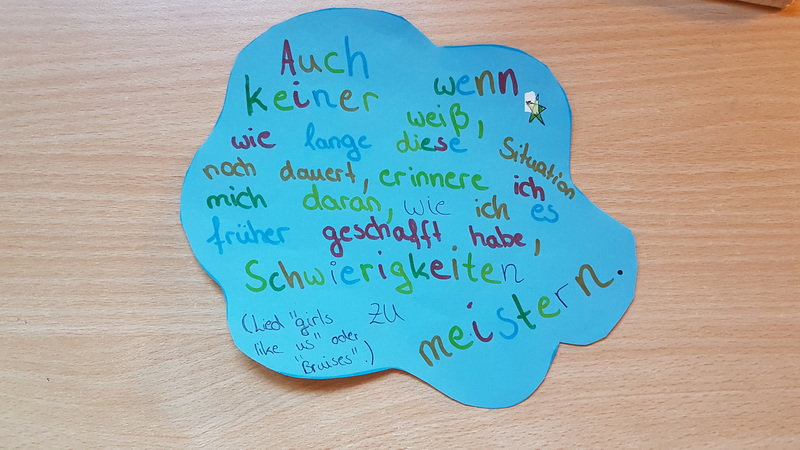 Auch wenn
keiner weiß,
wie lange diese Situation
noch dauert, erinnere ich
mich daran, wie ich es
früher geschafft habe,
Schwierigkeiten
zu meistern.
(Lied "girls
like us" oder
"Bruises".)